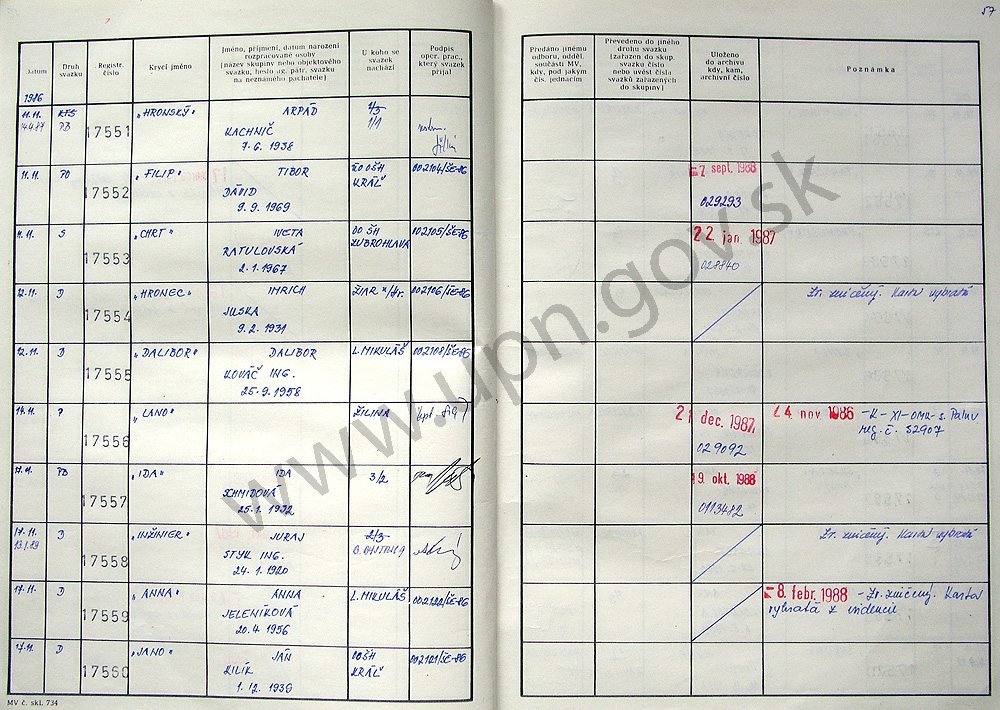 57
Datum
Druh svazku
Registr. číslo
Krycí jméno
Jméno, příjmení, datum narození
rozpracované osoby
(název skupiny nebo objektového
svazku, heslo ag. pátr. svazku
na neznámého pachatele)
U koho se
svazek
nachází
Podpis
oper. prac.,
který svazek
přijal
Předáno jinému
odboru, odděl.
součásti MV,
kdy, pod jakým
čís. jednacím
Převedeno do jiného
druhu svazku
(zařazen do skup.
svazku číslo
nebo uvést čísla
svazků zařazených
do skupiny)
Uloženo
do archivu
kdy, kam,
archivní číslo
Poznámka
1986
11.11. KTS 17551 „HRONSKÝ" ARPÁD 4/3
14.4.87 PB KACHNIČ 1/1
7.6.1938
11.11. PO 17552 „FILIP" TIBOR ŽO OŠH 002104/ŠE-86 7. sept. 1988
DÁVID KRÁĽ
9.9.1969 029293
11.11. S 17553 „CHRT" IVETA OO ŠH 002105/ŠE-86 22. jan. 1987
RATULOVSKÁ ZUBROHLAVA
2.1.1967 028840
12.11. D 17554 „HRONEC" IMRICH ŽIAR n/Hr. 002106/ŠE-86 Zv. zničený. Karta vybratá
JUSKA
9.2.1931
12.11. D 17555 „DALIBOR" DALIBOR L. MIKULÁŠ 002108/ŠE-86
KOVÁČ ING.
25.9.1958
14.11. ? 17556 „LANO" ŽILINA kpt. 21. dec. 1987 24. nov. 1986 -K-XI-OMK-
029092 reg. č. 52907
17.11. PB 17557 „IDA" IDA 3/2 19. okt. 1988
SCHMIDOVÁ
25.1.1932 0113482
17.11. D 17558 „INŽINIER" JURAJ 2/3- Zv. zničený. Karta vybratá
STYK ING. B. BYSTRICA
24.1.1920
17.11. D 17559 „ANNA" ANNA L. MIKULÁŠ 002122/ŠE-86 8. febr. 1988 - Zv. zničený. Karta
JELENÍKOVÁ vybratá z evidencie
20.4.1956
17.11. D 17560 „JANO" JÁN OOŠH 002121/ŠE-86
KILÍK KRÁĽ
1.12.1936
MV č. skl. 734
www.upn.gov.sk